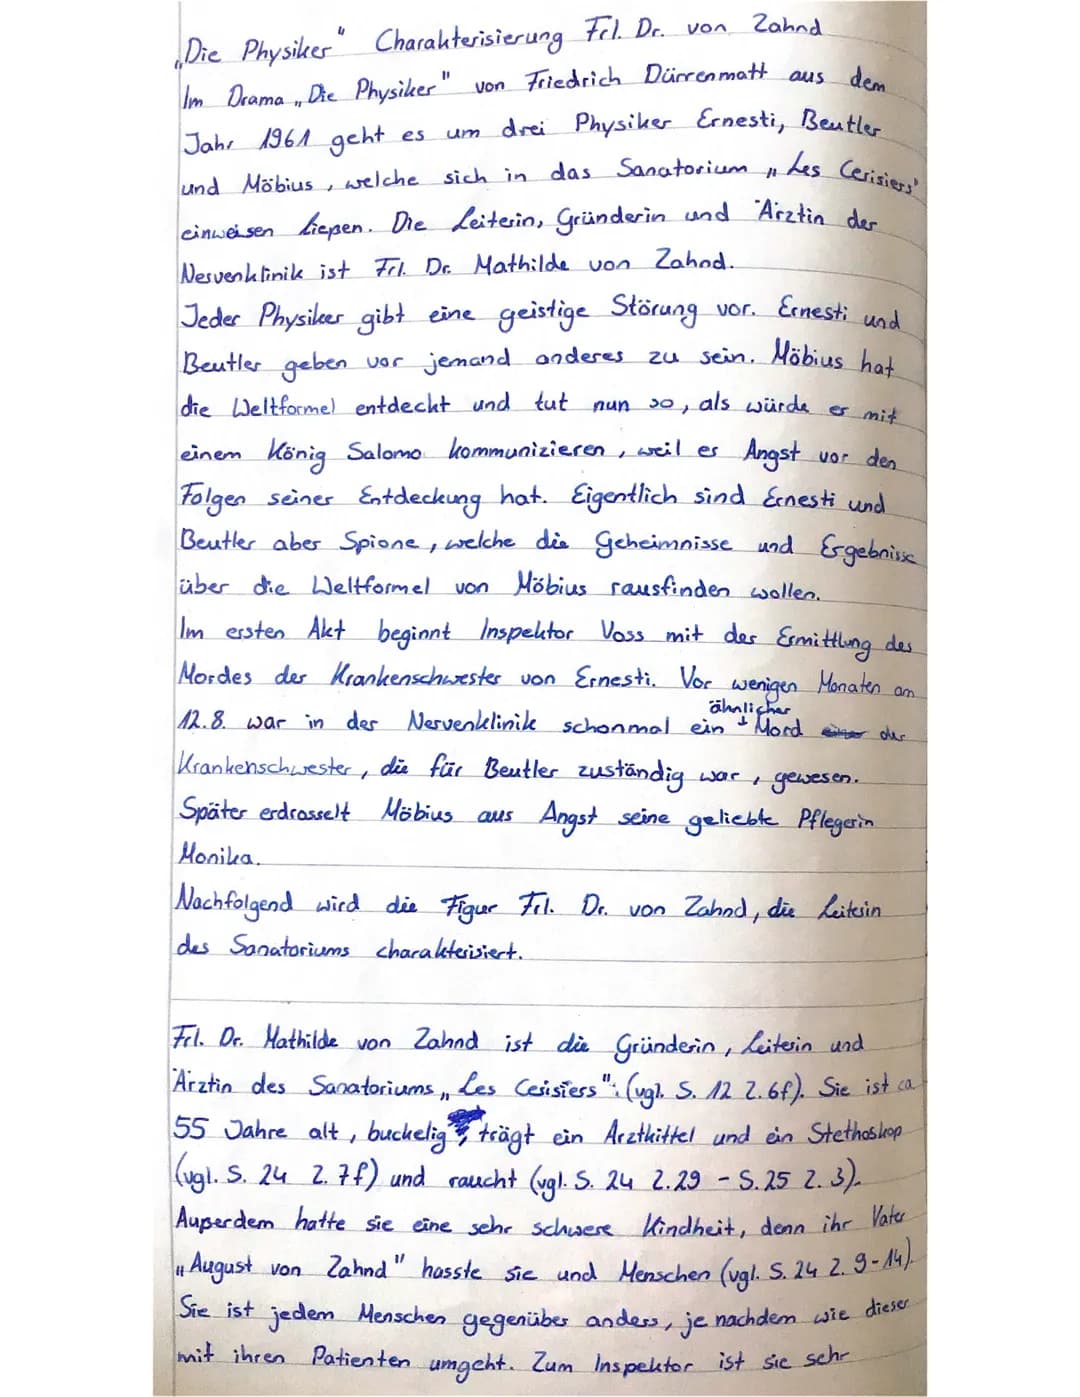 „Die Physiker" Charakterisierung Frl. Dr. von Zahnd
Im Drama „Die Physiker" von Friedrich Dürrenmatt aus dem
Jahr 1961 geht es um drei Physiker Ernesti, Beutler
und Möbius, welche sich in das Sanatorium „Les Cerisiers"
einweisen ließen. Die Leiterin, Gründerin und Ärztin der
Nervenklinik ist Frl. Dr. Mathilde von Zahnd.
Jeder Physiker gibt eine geistige Störung vor. Ernesti und
Beutler geben vor jemand anderes zu sein. Möbius hat
die Weltformel entdeckt und tut nun so, als würde er mit
einem König Salomo kommunizieren, weil er Angst vor den
Folgen seiner Entdeckung hat. Eigentlich sind Ernesti und
Beutler aber Spione, welche die Geheimnisse und Ergebnisse
über die Weltformel von Möbius rausfinden wollen.
Im ersten Akt beginnt Inspektor Voss mit der Ermittlung des
Mordes der Krankenschwester von Ernesti. Vor wenigen Monaten am
12.8. war in der Nervenklinik schonmal ein ähnlicher Mord der
Krankenschwester, die für Beutler zuständig war, gewesen.
Später erdrosselt Möbius aus Angst seine geliebte Pflegerin
Monika.
Nachfolgend wird die Figur Frl. Dr. von Zahnd, die Leiterin
des Sanatoriums charakterisiert.
Frl. Dr. Mathilde von Zahnd ist die Gründerin, Leiterin und
Ärztin des Sanatoriums „Les Cerisiers" (vgl. S. 12 Z. 6f). Sie ist ca
55 Jahre alt, buckelig, trägt ein Arztkittel und ein Stethoskop
(vgl. S. 24 Z. 7f) und raucht (vgl. S. 24 Z. 29 - S. 25 Z. 3).
Außerdem hatte sie eine sehr schwere Kindheit, denn ihr Vater
„August von Zahnd" hasste sie und Menschen (vgl. S. 24 Z. 9-14).
Sie ist jedem Menschen gegenüber anders, je nachdem wie dieser
mit ihren Patienten umgeht. Zum Inspektor ist sie sehr